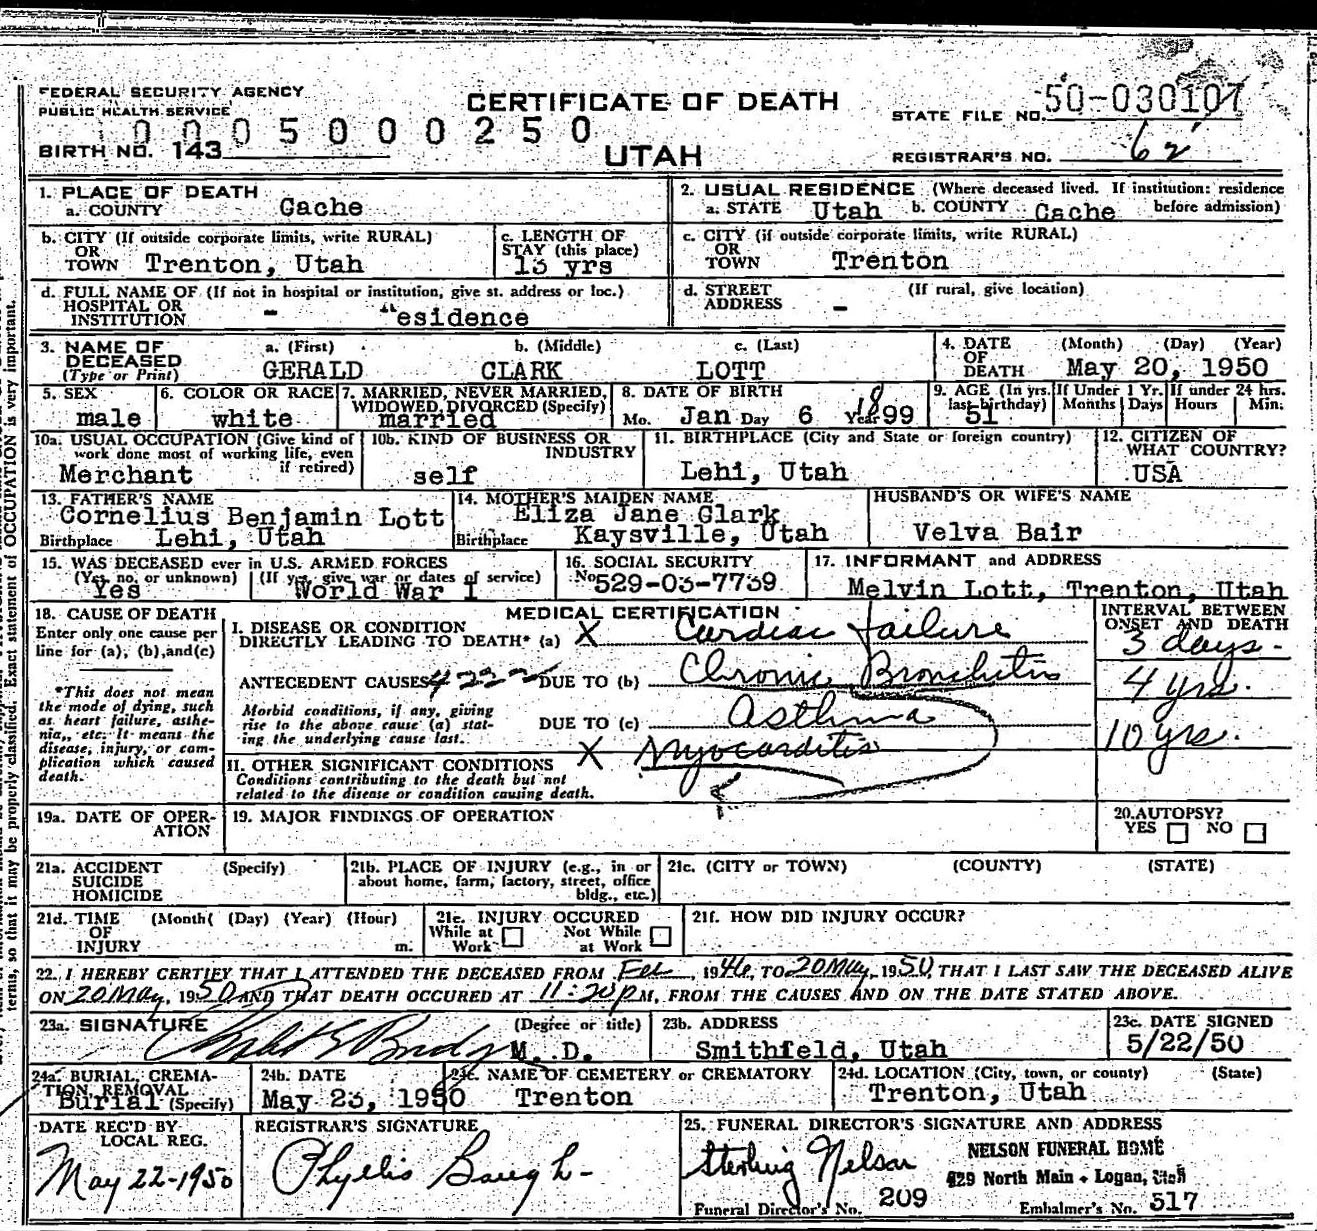 FEDERAL SECURITY AGENCY
PUBLIC HEALTH SERVICE
CERTIFICATE OF DEATH
STATE FILE NO. 50-030107
0005000250
BIRTH NO. 143
UTAH
REGISTRAR'S NO. 62
1. PLACE OF DEATH
a. COUNTY Cache
2. USUAL RESIDENCE (Where deceased lived. If institution: residence
a. STATE Utah b. COUNTY Cache before admission)
b. CITY (If outside corporate limits, write RURAL)
OR
TOWN Trenton, Utah
c. LENGTH OF
STAY (this place)
13 yrs
c. CITY (if outside corporate limits, write RURAL)
OR
TOWN Trenton
d. FULL NAME OF (If not in hospital or institution, give st. address or loc.)
HOSPITAL OR
INSTITUTION - esidence
d. STREET (If rural, give location)
ADDRESS -
3. NAME OF a. (First) b. (Middle) c. (Last)
DECEASED
(Type or Print) GERALD CLARK LOTT
4. DATE (Month) (Day) (Year)
OF
DEATH May 20, 1950
5. SEX
male
6. COLOR OR RACE
white
7. MARRIED, NEVER MARRIED,
WIDOWED, DIVORCED (Specify)
married
8. DATE OF BIRTH
Mo. Jan Day 6 Year 1899
9. AGE (In yrs. If Under 1 Yr. If under 24 hrs.
last birthday) Months Days Hours Min.
51
10a. USUAL OCCUPATION (Give kind of
work done most of working life, even
if retired)
Merchant
10b. KIND OF BUSINESS OR
INDUSTRY
self
11. BIRTHPLACE (City and State or foreign country)
Lehi, Utah
12. CITIZEN OF
WHAT COUNTRY?
USA
13. FATHER'S NAME
Cornelius Benjamin Lott
Birthplace Lehi, Utah
14. MOTHER'S MAIDEN NAME
Eliza Jane Clark
Birthplace Kaysville, Utah
HUSBAND'S OR WIFE'S NAME
Velva Bair
15. WAS DECEASED ever in U.S. ARMED FORCES
(Yes, no, or unknown) (If yes, give war or dates of service)
Yes World War I
16. SOCIAL SECURITY
No 529-03-7739
17. INFORMANT and ADDRESS
Melvin Lott, Trenton, Utah
18. CAUSE OF DEATH
Enter only one cause per
line for (a), (b), and (c)
*This does not mean
the mode of dying, such
as heart failure, asthe-
nia, etc. It means the
disease, injury, or com-
plication which caused
death.
MEDICAL CERTIFICATION
I. DISEASE OR CONDITION
DIRECTLY LEADING TO DEATH* (a) X Cardiac failure
ANTECEDENT CAUSES 4222 DUE TO (b) Chronic Bronchitis
Morbid conditions, if any, giving
rise to the above cause (a) stat-
ing the underlying cause last.
DUE TO (c) Asthma
X Myocarditis
II. OTHER SIGNIFICANT CONDITIONS
Conditions contributing to the death but not
related to the disease or condition causing death.
INTERVAL BETWEEN
ONSET AND DEATH
3 days.
4 yrs.
10 yrs.
19a. DATE OF OPER-
ATION
19. MAJOR FINDINGS OF OPERATION
20. AUTOPSY?
YES NO
21a. ACCIDENT (Specify)
SUICIDE
HOMICIDE
21b. PLACE OF INJURY (e.g., in or
about home, farm, factory, street, office
bldg., etc.)
21c. (CITY or TOWN) (COUNTY) (STATE)
21d. TIME (Month( (Day) (Year) (Hour)
OF
INJURY m.
21e. INJURY OCCURED
While at Not While
Work at Work
21f. HOW DID INJURY OCCUR?
22. I HEREBY CERTIFY THAT I ATTENDED THE DECEASED FROM Feb, 1946, TO 20 May, 1950, THAT I LAST SAW THE DECEASED ALIVE
ON 20 May, 1950 AND THAT DEATH OCCURED AT 11:20 P M, FROM THE CAUSES AND ON THE DATE STATED ABOVE.
23a. SIGNATURE (Degree or title)
M. D.
23b. ADDRESS
Smithfeld, Utah
23c. DATE SIGNED
5/22/50
24a. BURIAL, CREMA-
TION, REMOVAL
Burial (Specify)
24b. DATE
May 23, 1950
24c. NAME OF CEMETERY or CREMATORY
Trenton
24d. LOCATION (City, town, or county) (State)
Trenton, Utah
DATE REC'D BY
LOCAL REG.
May 22-1950
REGISTRAR'S SIGNATURE
Phyllis Baugh
25. FUNERAL DIRECTOR'S SIGNATURE AND ADDRESS
Sterling Nelson
NELSON FUNERAL HOME
429 North Main - Logan, Utah
Funeral Director's No. 209 Embalmer's No. 517
terms, so that it may be properly classified. Exact statement of OCCUPATION is very important.